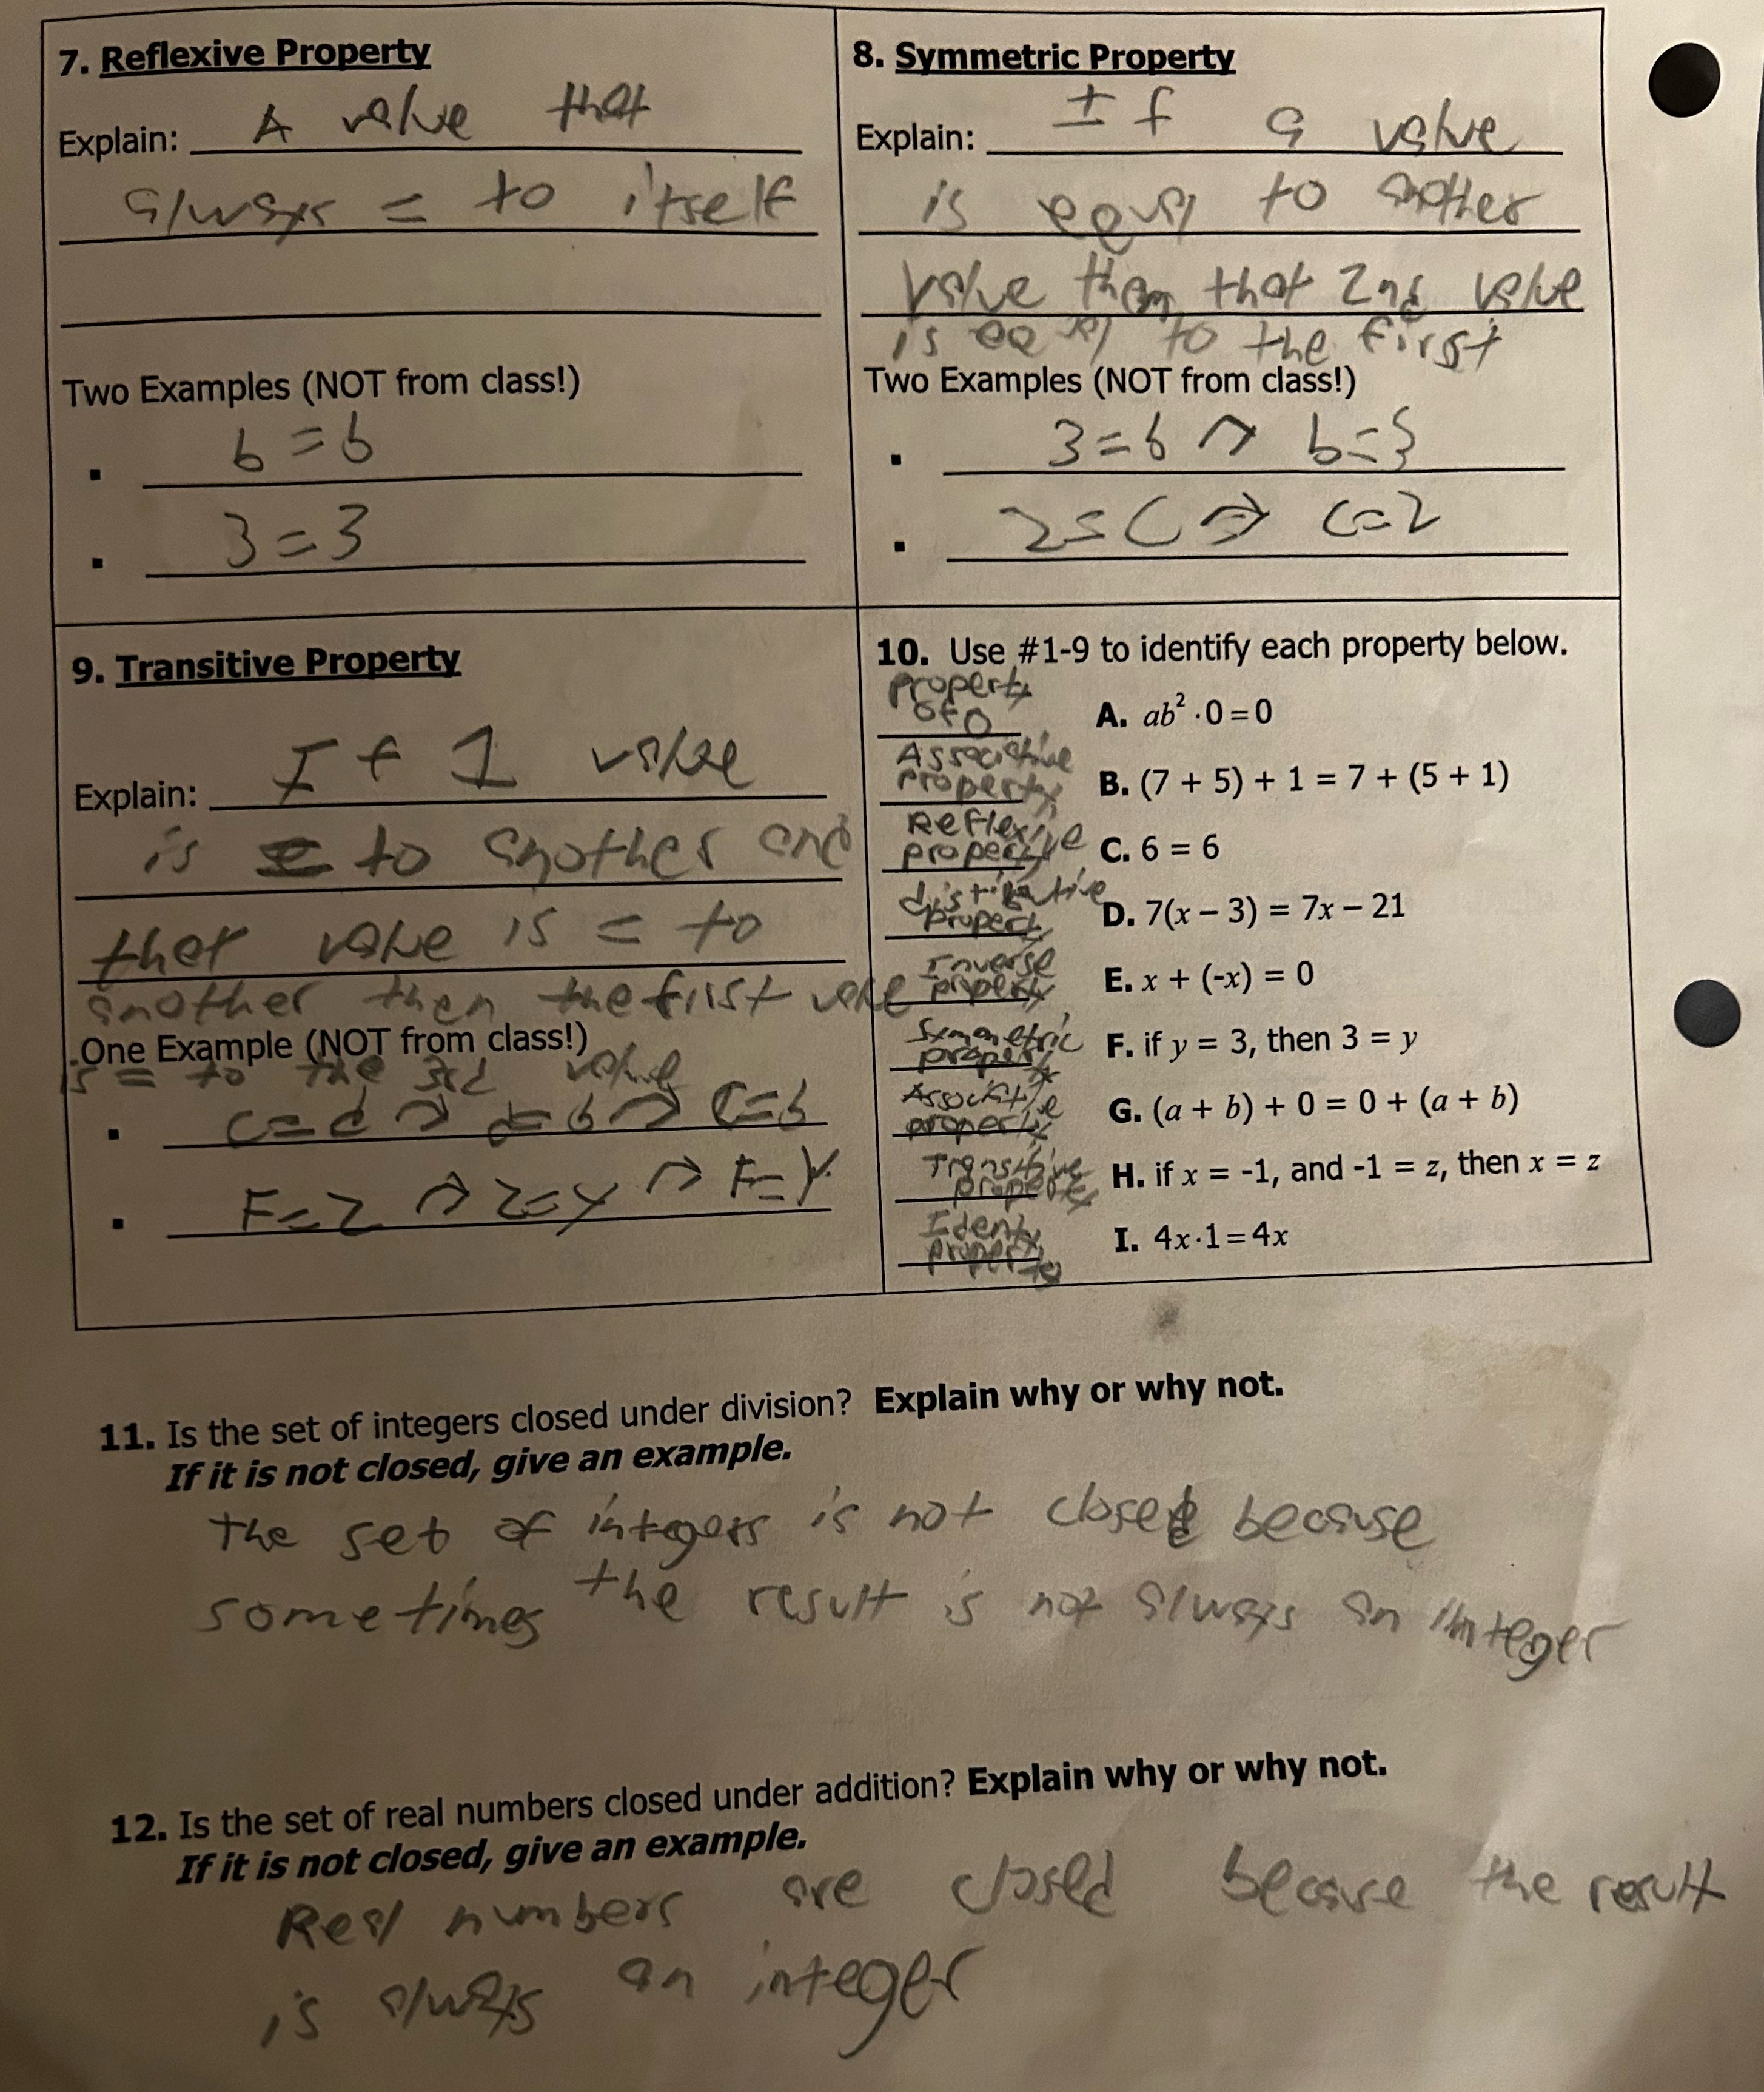 7. Reflexive Property
Explain: A value that
always = to itself
Two Examples (NOT from class!)
▪ b = b
▪ 3 = 3
8. Symmetric Property
Explain: If a value
is equal to another
value then that 2nd value
is equal to the first
Two Examples (NOT from class!)
▪ 3 = b → b = 3
▪ 2 = C → C = 2
9. Transitive Property
Explain: If 1 value
is = to another and
that value is = to
another then the first value
One Example (NOT from class!)
is = to the 3rd value
▪ c = d → d = b → C = b
▪ F = Z → Z = Y → F = Y
10. Use #1-9 to identify each property below.
Property of 0 A. ab² · 0 = 0
Associative property B. (7 + 5) + 1 = 7 + (5 + 1)
Reflexive property C. 6 = 6
property D. 7(x – 3) = 7x – 21
Inverse property E. x + (-x) = 0
Symmetric property F. if y = 3, then 3 = y
property G. (a + b) + 0 = 0 + (a + b)
Transitive property H. if x = -1, and -1 = z, then x = z
Identy property I. 4x · 1 = 4x
11. Is the set of integers closed under division? Explain why or why not.
If it is not closed, give an example.
The set of integers is not closed because
sometimes the result is not always an integer
12. Is the set of real numbers closed under addition? Explain why or why not.
If it is not closed, give an example.
Real numbers are closed because the result
is always an integer